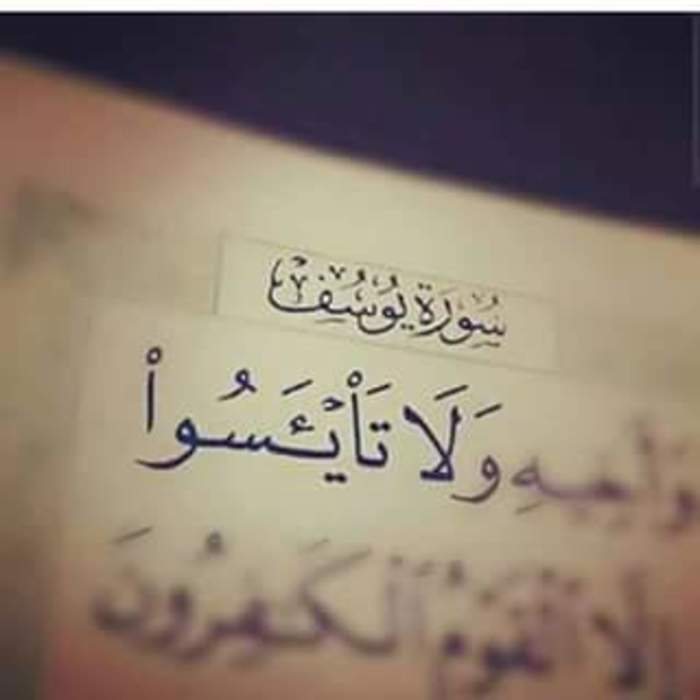 سُورَةُ يُوسُفَ
وَأَخِيهِ وَلَا تَا۟يْـَٔسُوا۟
إِلَّا ٱلْقَوْمُ ٱلْكَـٰفِرُونَ